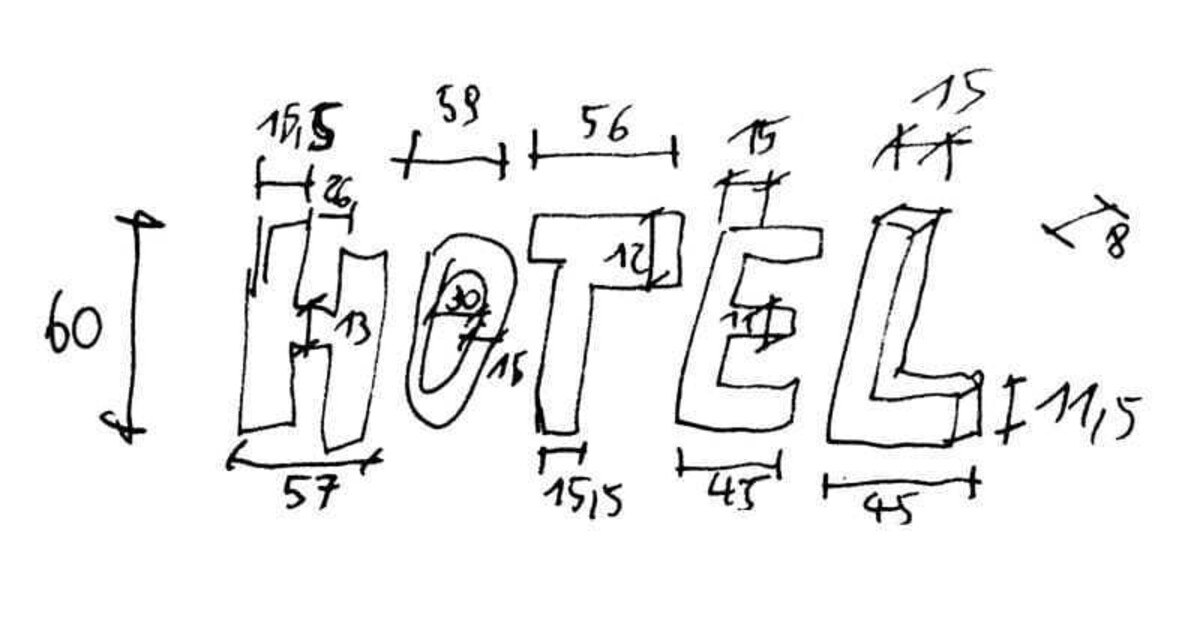 15,5 59 56 15 15
26
60 HOTEL 8
12
30 13 11
15 11,5
57 15,5 43 45